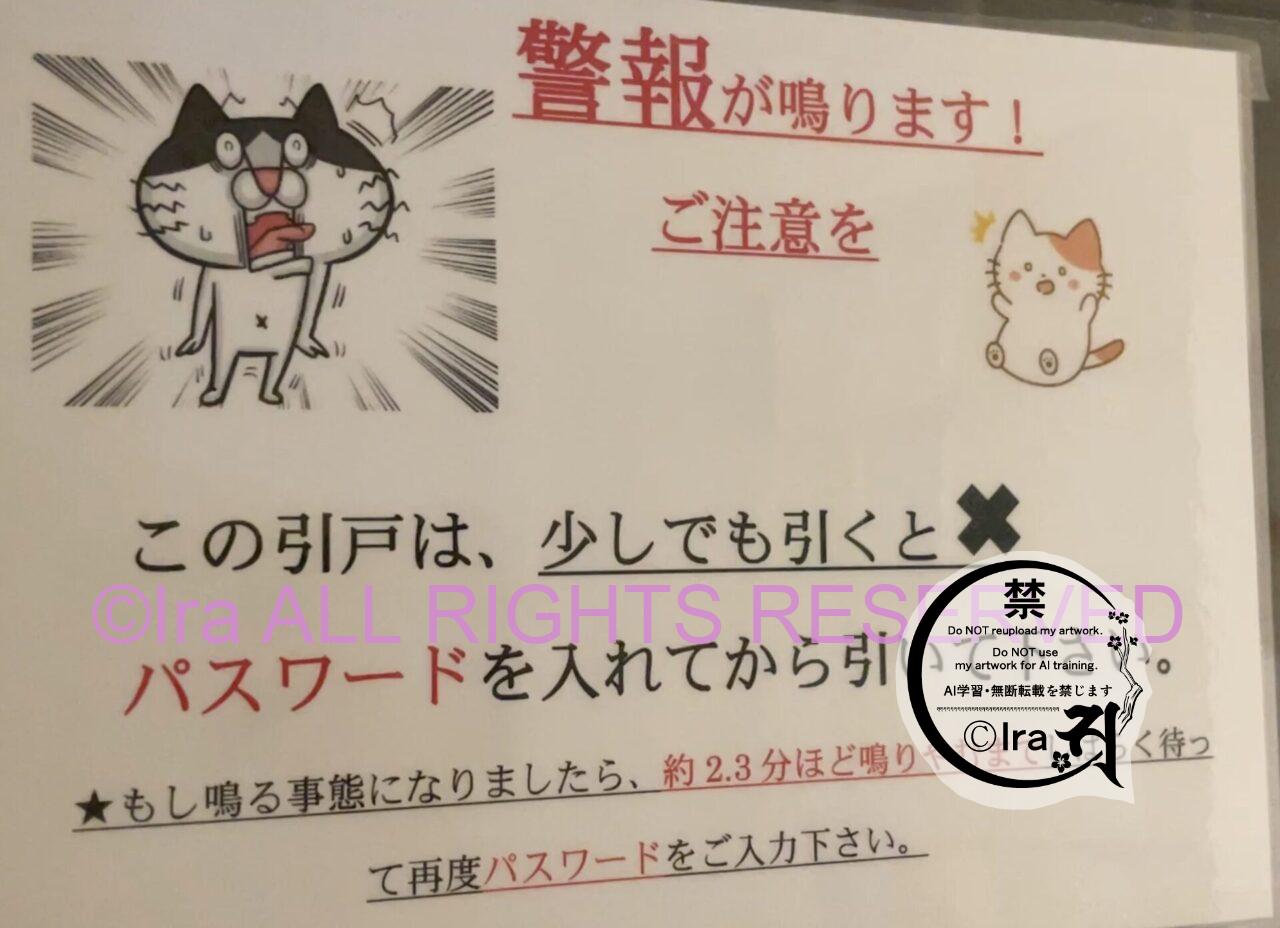 警報が鳴ります！
ご注意を
この引戸は、少しでも引くと✖
©Ira ALL RIGHTS RESERVED
パスワードを入れてから引いて下さい。
禁
Do NOT reupload my artwork.
Do NOT use
my artwork for AI training.
AI学習・無断転載を禁じます
©Ira
★もし鳴る事態になりましたら、約2.3分ほど鳴りやむまでしばらく待っ
て再度パスワードをご入力下さい。